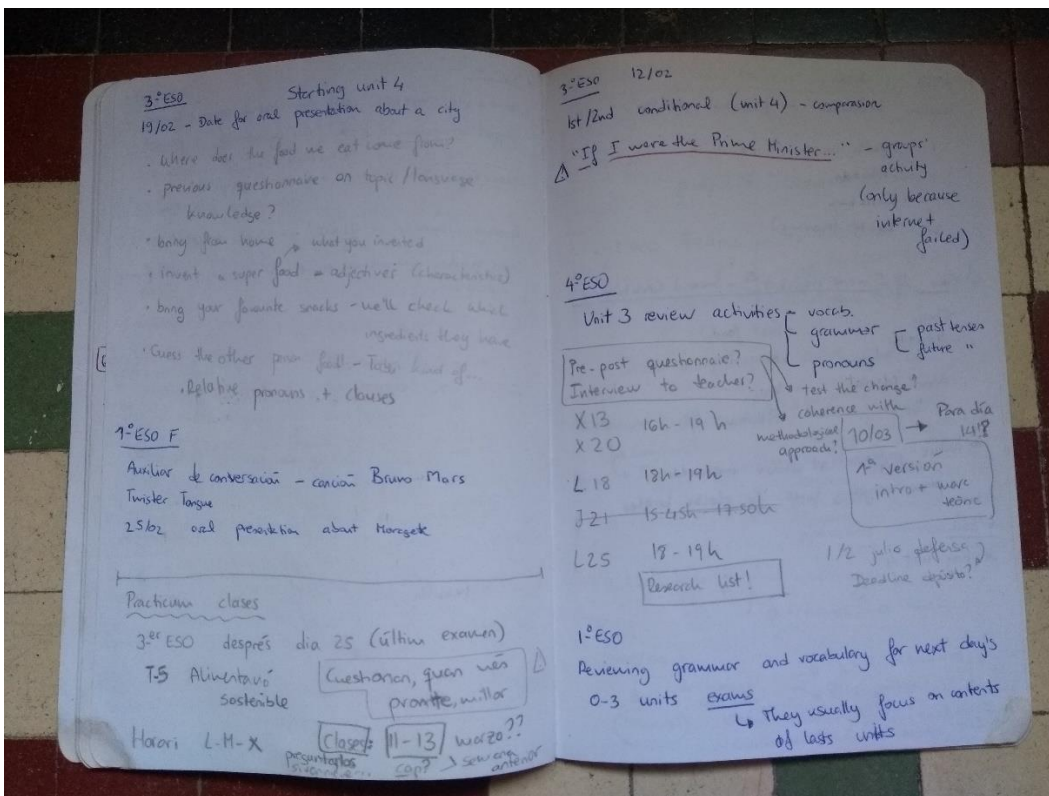 3º ESO Starting unit 4
19/02 - Date for oral presentation about a city
. Where does the food we eat come from?
. previous questionnaire on topic / language
knowledge?
. bring from home what you invented
. invent a super food = adjectives (characteristics)
. bring your favourite snacks - we'll check what
ingredients they have
. Guess the other person food - kind of...
. Relative pronouns + clauses
1º ESO F
Auxiliar de conversación - canción Bruno Mars
Twister Tongue
25/02 oral presentation about
Practicum clases
3er ESO després dia 25 (últim examen)
T-5 Alimentació
sostenible
Cuestionari, quan més
prontte, millor
Horari L-M-X
Clases: 11-13 marzo??
preguntarlos
cap? → semana
anterior
3º ESO 12/02
1st/2nd conditional (unit 4) - comparasion
"If I were the Prime Minister..." - groups'
activity
(only because
internet
failed)
4º ESO
Unit 3 review activities - vocab.
grammar [ past tenses
future "
pronouns
Pre-post questionnaie?
Interview to teacher?
test the change?
coherence with
methodological
approach?
X13 16h - 19h
X20
L18 18h - 19h
J21 15:45h - 17:50h
L25 18 - 19h
Research list!
10/03 → Para día
14!?
1ª versión
intro + marc
teòric
1/2 julio defensa
Deadline agosto?
1º ESO
Reviewing grammar and vocabulary for next day's
0-3 units exams
↳ They usually focus on contents
of lasts units